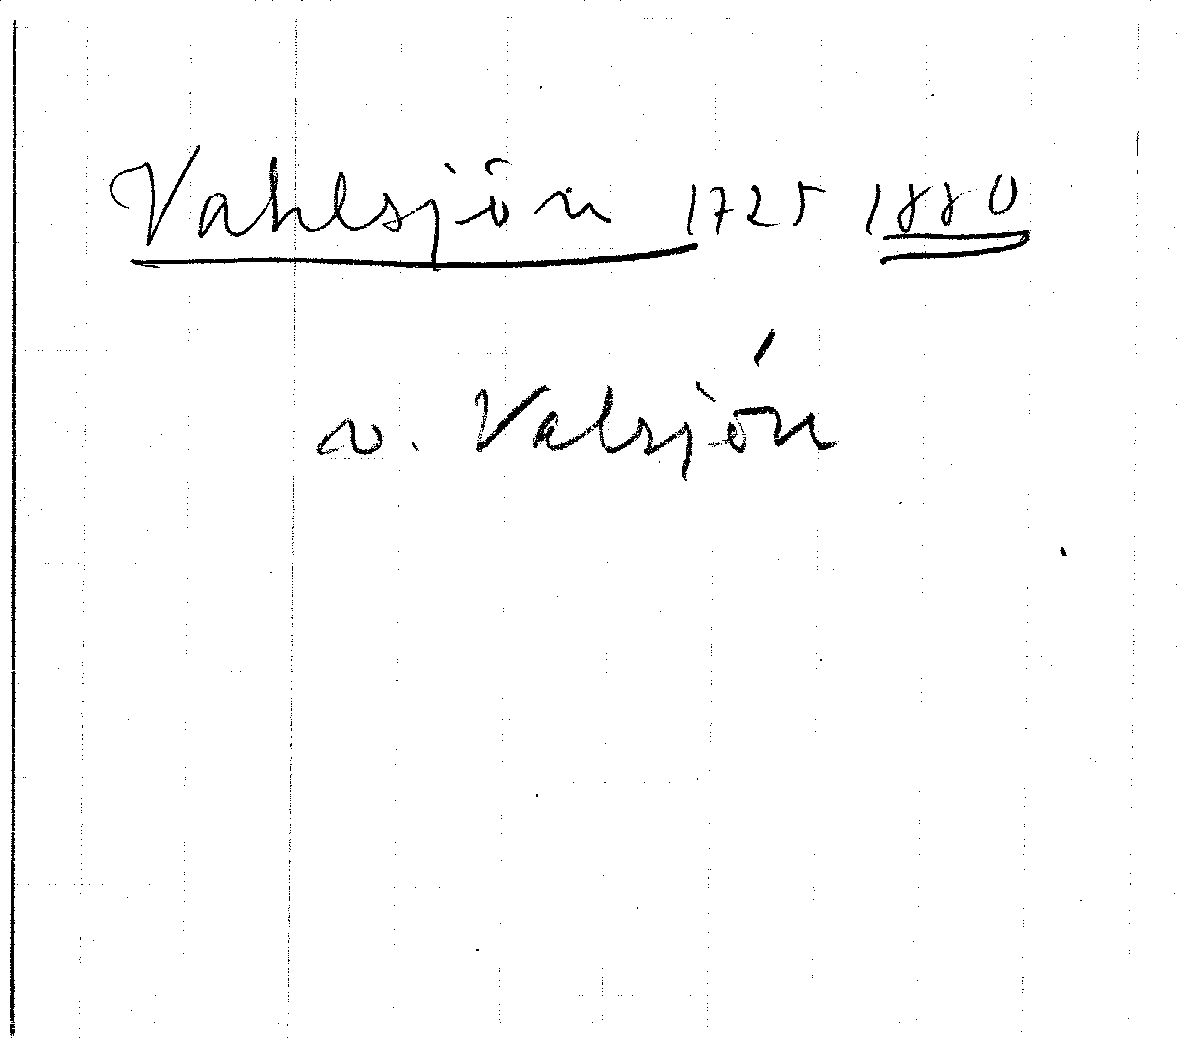 Vahlsjön 1725 1880
v. Valsjön